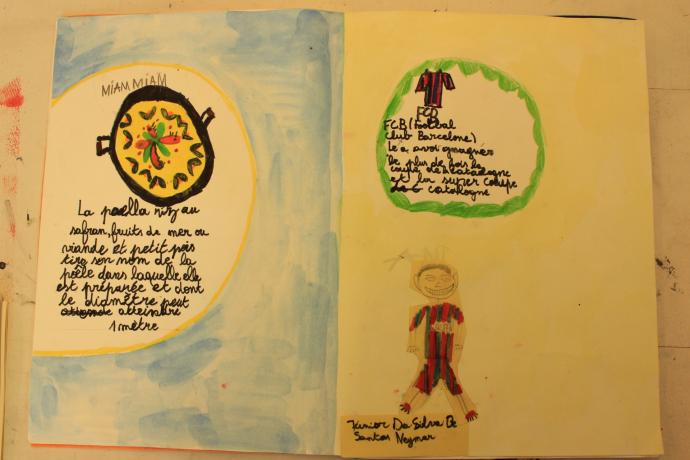 MIAM MIAM
La paella riz au
safran, fruits de mer ou
viande et petit pois
tire son nom de la
poêle dans laquelle elle
est préparée et dont
le diamètre peut
atteindre
1 mètre
FCB
FCB (Footbal
Club Barcelone)
le a avoir gagner
le plus de fois la
coupe de la catalogne
et la super coupe
catalogne
Junior Da Silva De
Santos Neymar